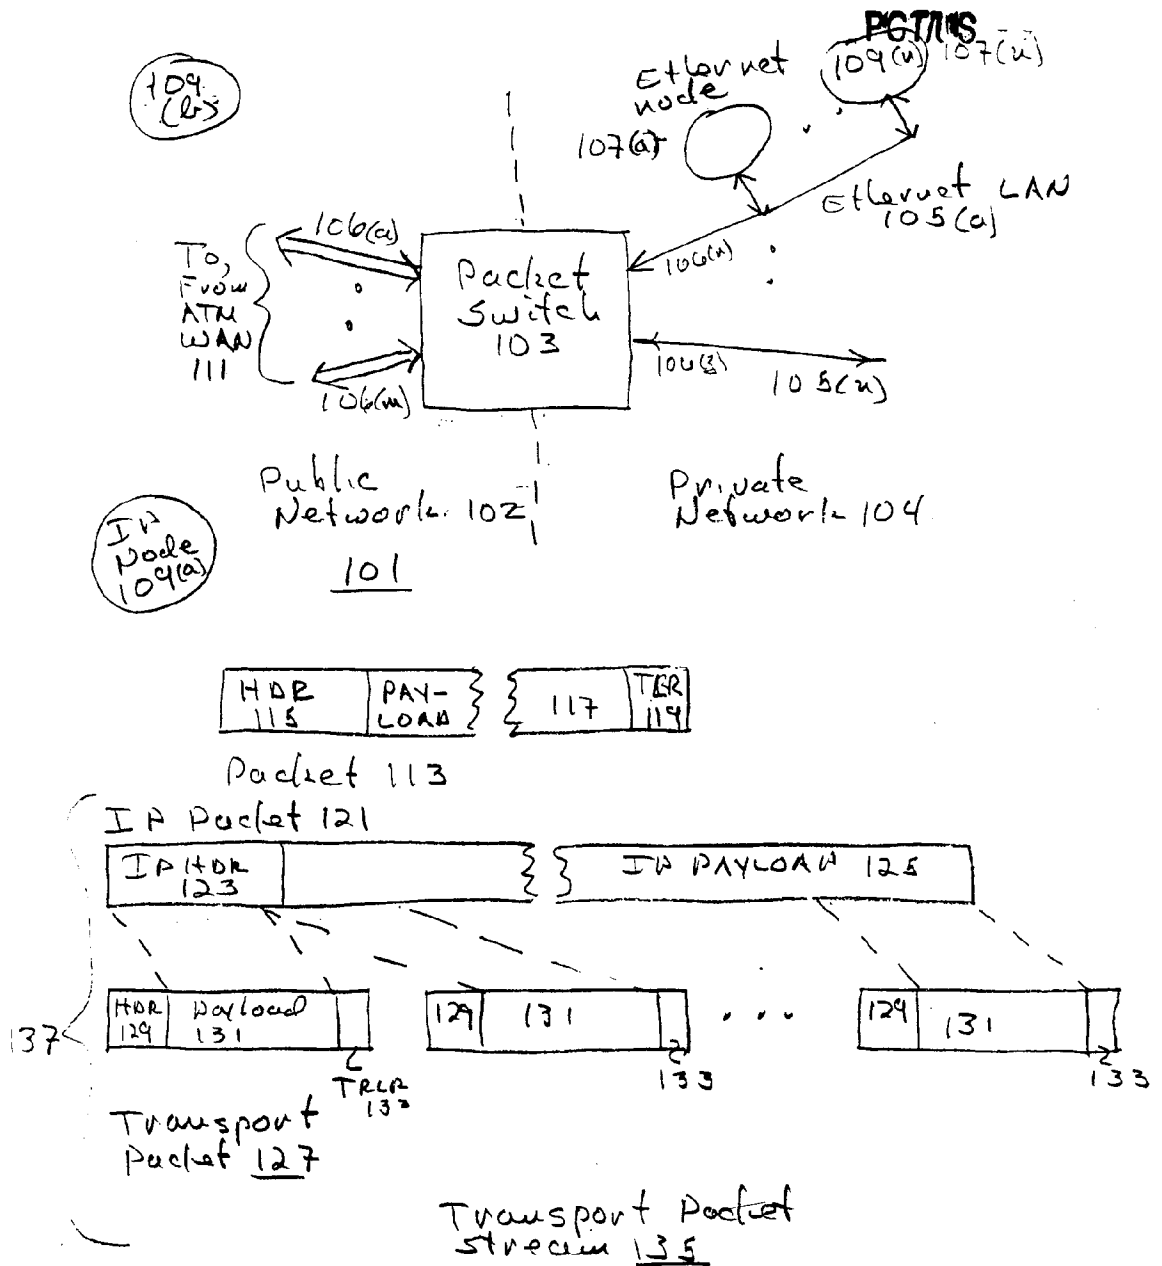 PCT/US
109
(b)
Ethernet
node
109(n) 107(n)
107(a)
Ethernet LAN
105(a)
106(a)
To,
From
ATM
WAN
111
Packet
Switch
103
106(n)
106(m)
105(n)
Public
Network 102
Private
Network 104
IP
Node
109(a)
101
HDR
115
PAY-
LOAD
117
TLR
119
Packet 113
IP Packet 121
IP HDR
123
IP PAYLOAD 125
HDR
129
Payload
131
129
131
129
131
137
TRLR
133
133
133
Transport
Packet 127
Transport Packet
stream 135